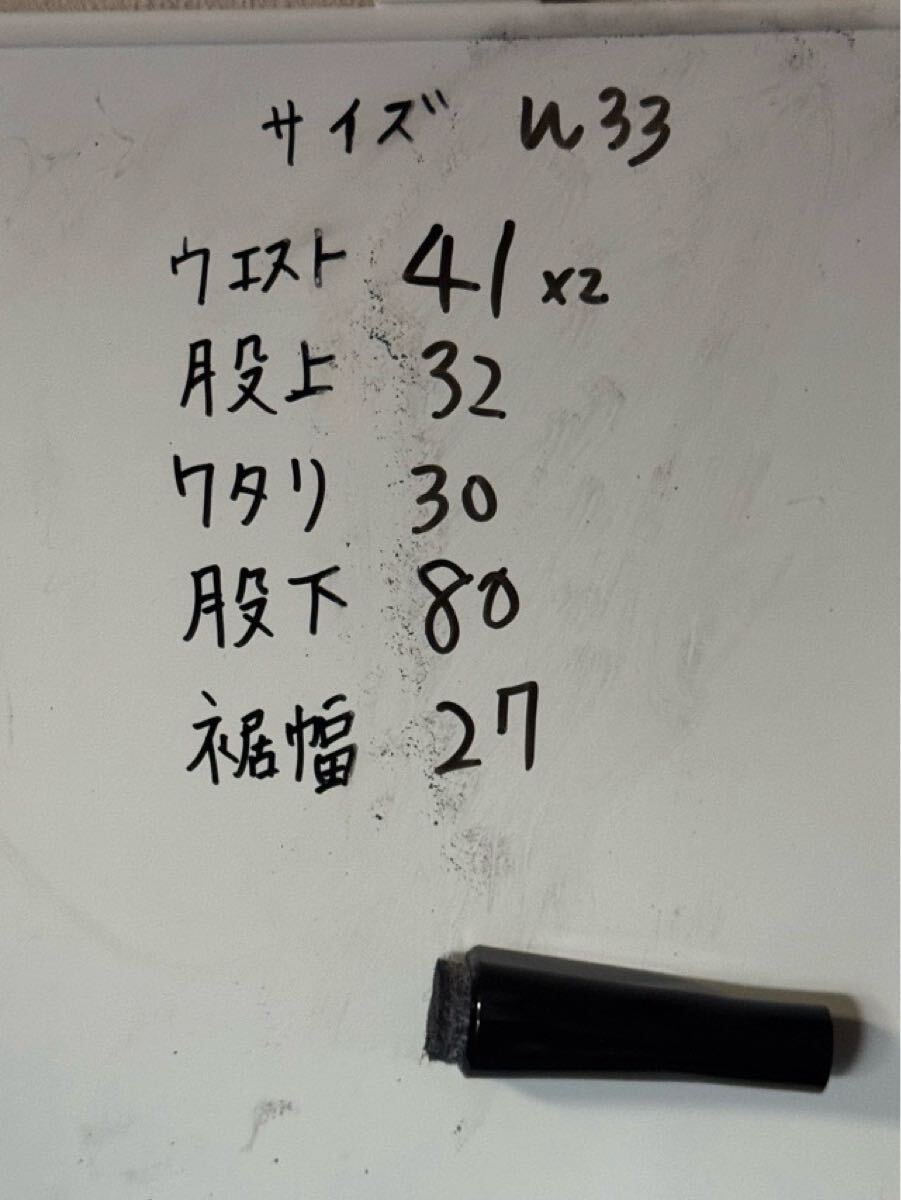 サイズ W33
ウエスト 41 x2
股上 32
ワタリ 30
股下 80
裾幅 27